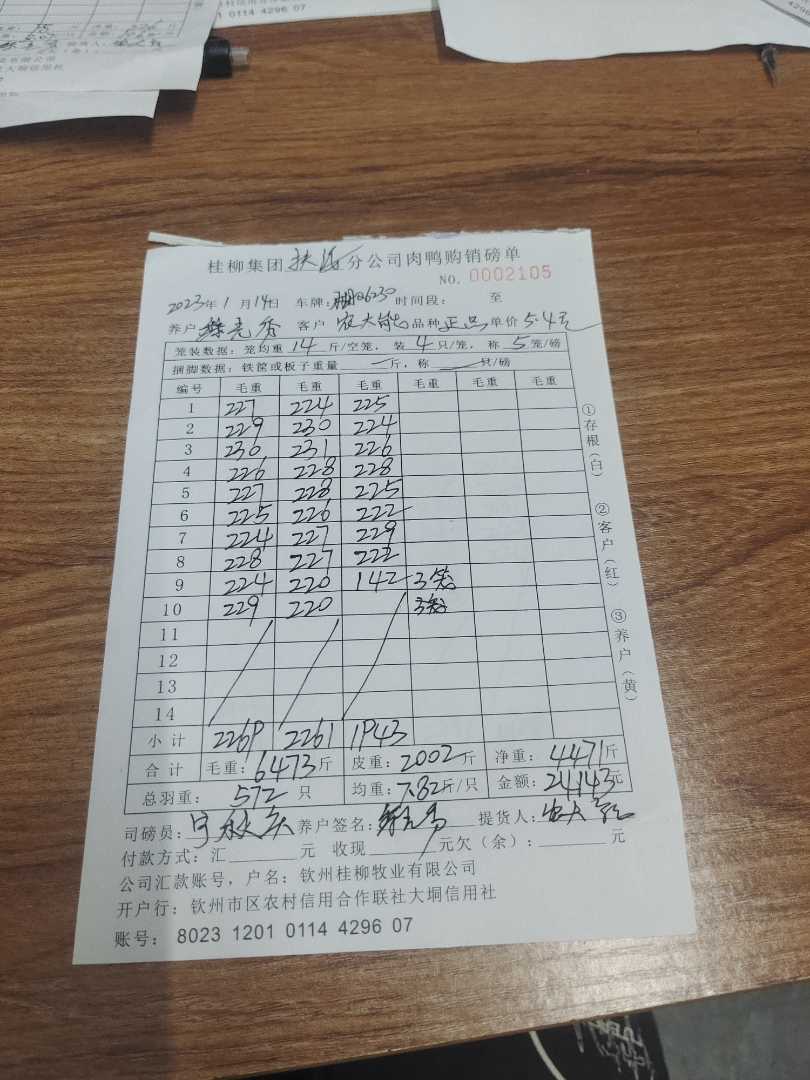 8023 1201 0114 4296 07
桂柳集团 扶绥 分公司肉鸭购销磅单
NO. 0002105
2023年1月14日 车牌: 湘06230 时间段: 至
养户 客户 农大能 品种 正品 单价 5.4元
笼装数据: 笼均重 14 斤/空笼, 装 4 只/笼, 称 5 笼/磅
捆脚数据: 铁筐或板子重量 斤, 称 只/磅
编号 毛重 毛重 毛重 毛重 毛重 毛重
1 227 224 225
2 229 230 224
3 230 231 226
4 226 228 228
5 227 228 225
6 225 226 222
7 224 227 229
8 228 227 222
9 224 220 142 3笼
10 229 220 3笼
11
12
13
14
小计 2269 2261 1943
合计 毛重: 6473斤 皮重: 2002斤 净重: 4471斤
总羽重: 572 只 均重: 7.82斤/只 金额: 24143元
司磅员: 养户签名: 提货人:
付款方式: 汇 元 收现 元欠(余): 元
公司汇款账号, 户名: 钦州桂柳牧业有限公司
开户行: 钦州市区农村信用合作联社大垌信用社
账号: 8023 1201 0114 4296 07
①存根(白)
②客户(红)
③养户(黄)